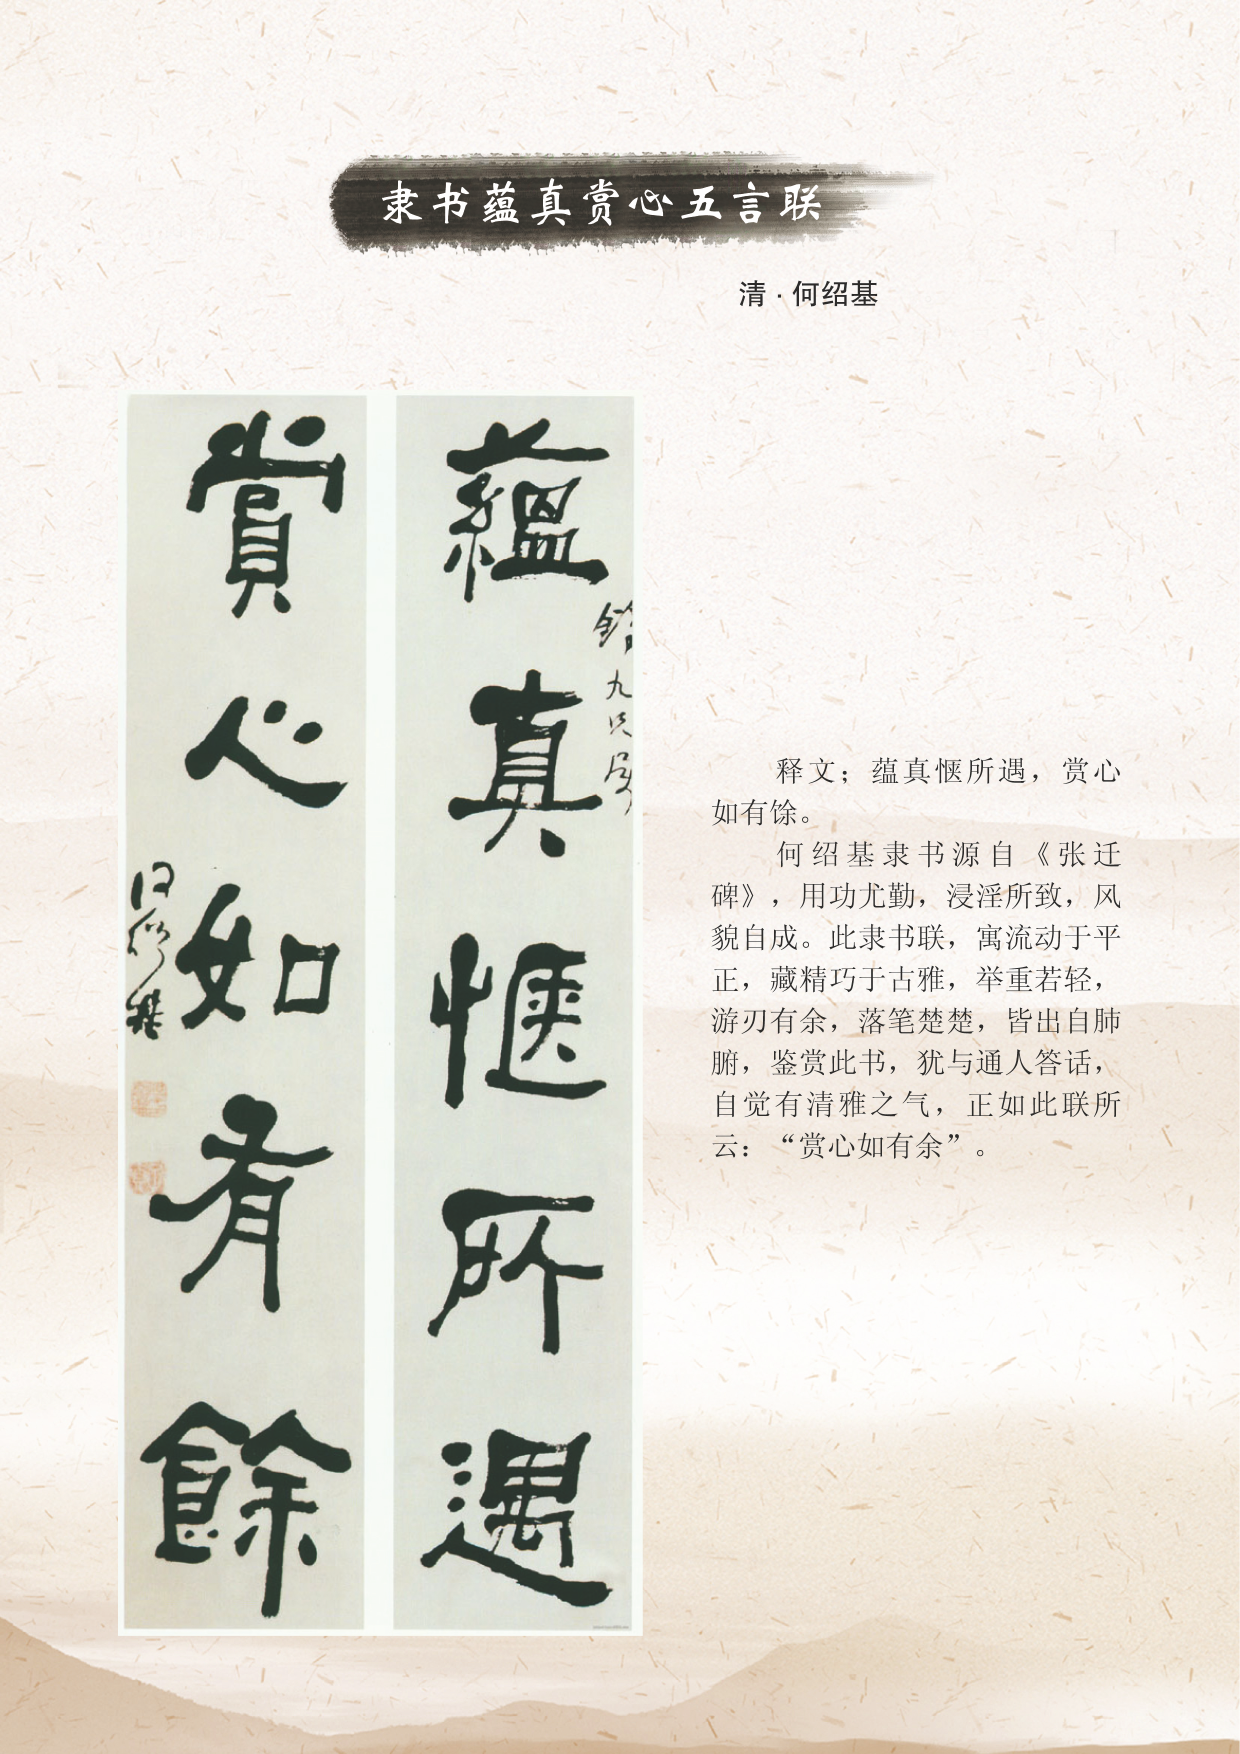 隶书蕴真赏心五言联
清·何绍基
蘊真愜所遇
賞心如有餘
九兄属
何绍基
释文；蕴真惬所遇，赏心
如有馀。
何绍基隶书源自《张迁
碑》，用功尤勤，浸淫所致，风
貌自成。此隶书联，寓流动于平
正，藏精巧于古雅，举重若轻，
游刃有余，落笔楚楚，皆出自肺
腑，鉴赏此书，犹与通人答话，
自觉有清雅之气，正如此联所
云：“赏心如有余”。